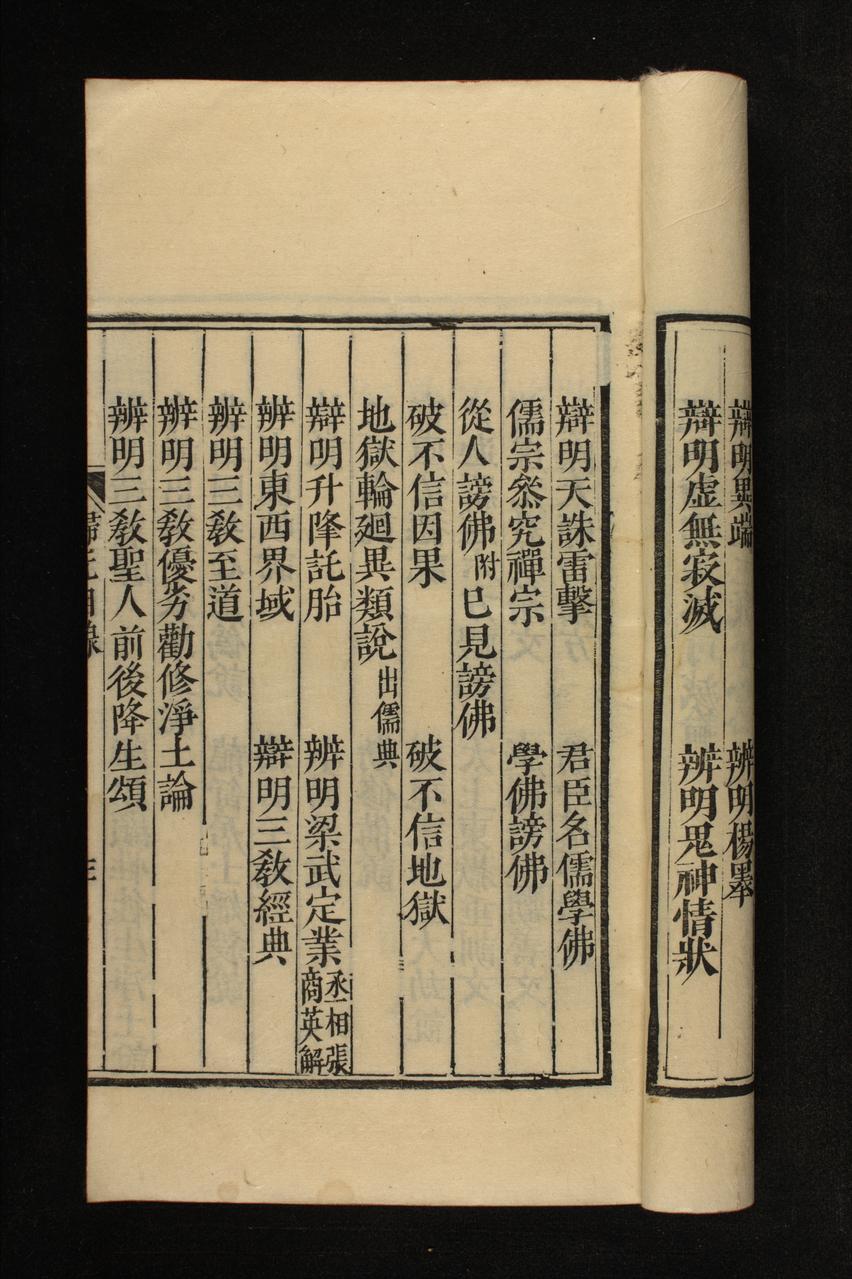 辯明異端　辨明楊墨
辯明虛無寂滅　辨明鬼神情狀
辯明天誅雷擊　君臣名儒學佛
儒宗叅究禪宗　學佛謗佛
從人謗佛附已見謗佛
破不信因果　破不信地獄
地獄輪廻異類說出儒典
辯明升降託胎　辨明梁武定業丞相張商英解
辨明東西界域　辯明三敎經典
辨明三敎至道
辨明三敎優劣勸修淨土論
辨明三敎聖人前後降生頌
歸元目錄